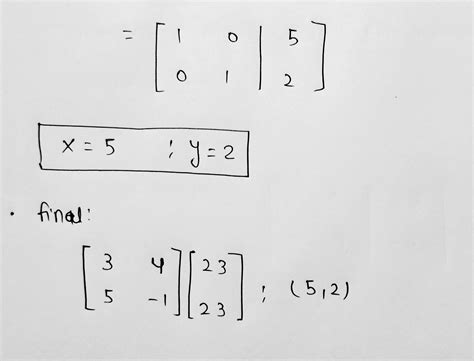 = [ 1 0 | 5
0 1 | 2 ]
x = 5 ; y = 2
• final:
[ 3 4 ] [ 23 ]
[ 5 -1 ] [ 23 ] ; (5,2)